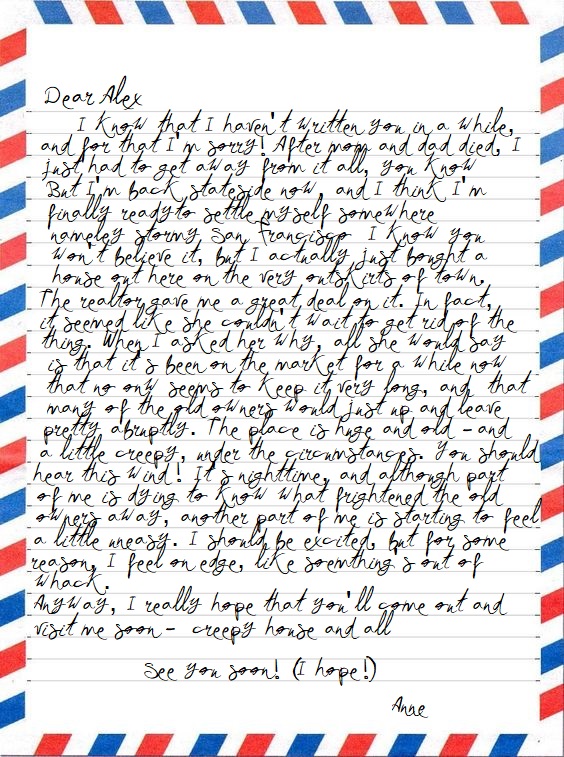 Dear Alex
I know that I haven't written you in a while,
and for that I'm sorry! After mom and dad died, I
just had to get away from it all, you know
But I'm back stateside now, and I think I'm
finally ready to settle myself somewhere
nameley stormy San Francisco I know you
won't believe it, but I actually just bought a
house out here on the very outskirts of town.
The realtor gave me a great deal on it. In fact,
it seemed like she couldn't wait to get rid of the
thing. When I asked her why, all she would say
is that it's been on the market for a while now
that no onw seems to keep it very long, and that
many of the old owners would just up and leave
pretty abruptly. The place is huge and old - and
a little creepy, under the circumstances. You should
hear this wind! It's nighttime, and although part
of me is dying to know what frightened the old
owners away, another part of me is starting to feel
a little uneasy. I should be excited, but for some
reason, I feel on edge, like soemthing's out of
whack.
Anyway, I really hope that you'll come out and
visit me soon - creepy house and all
See you soon! (I hope!)
Anne